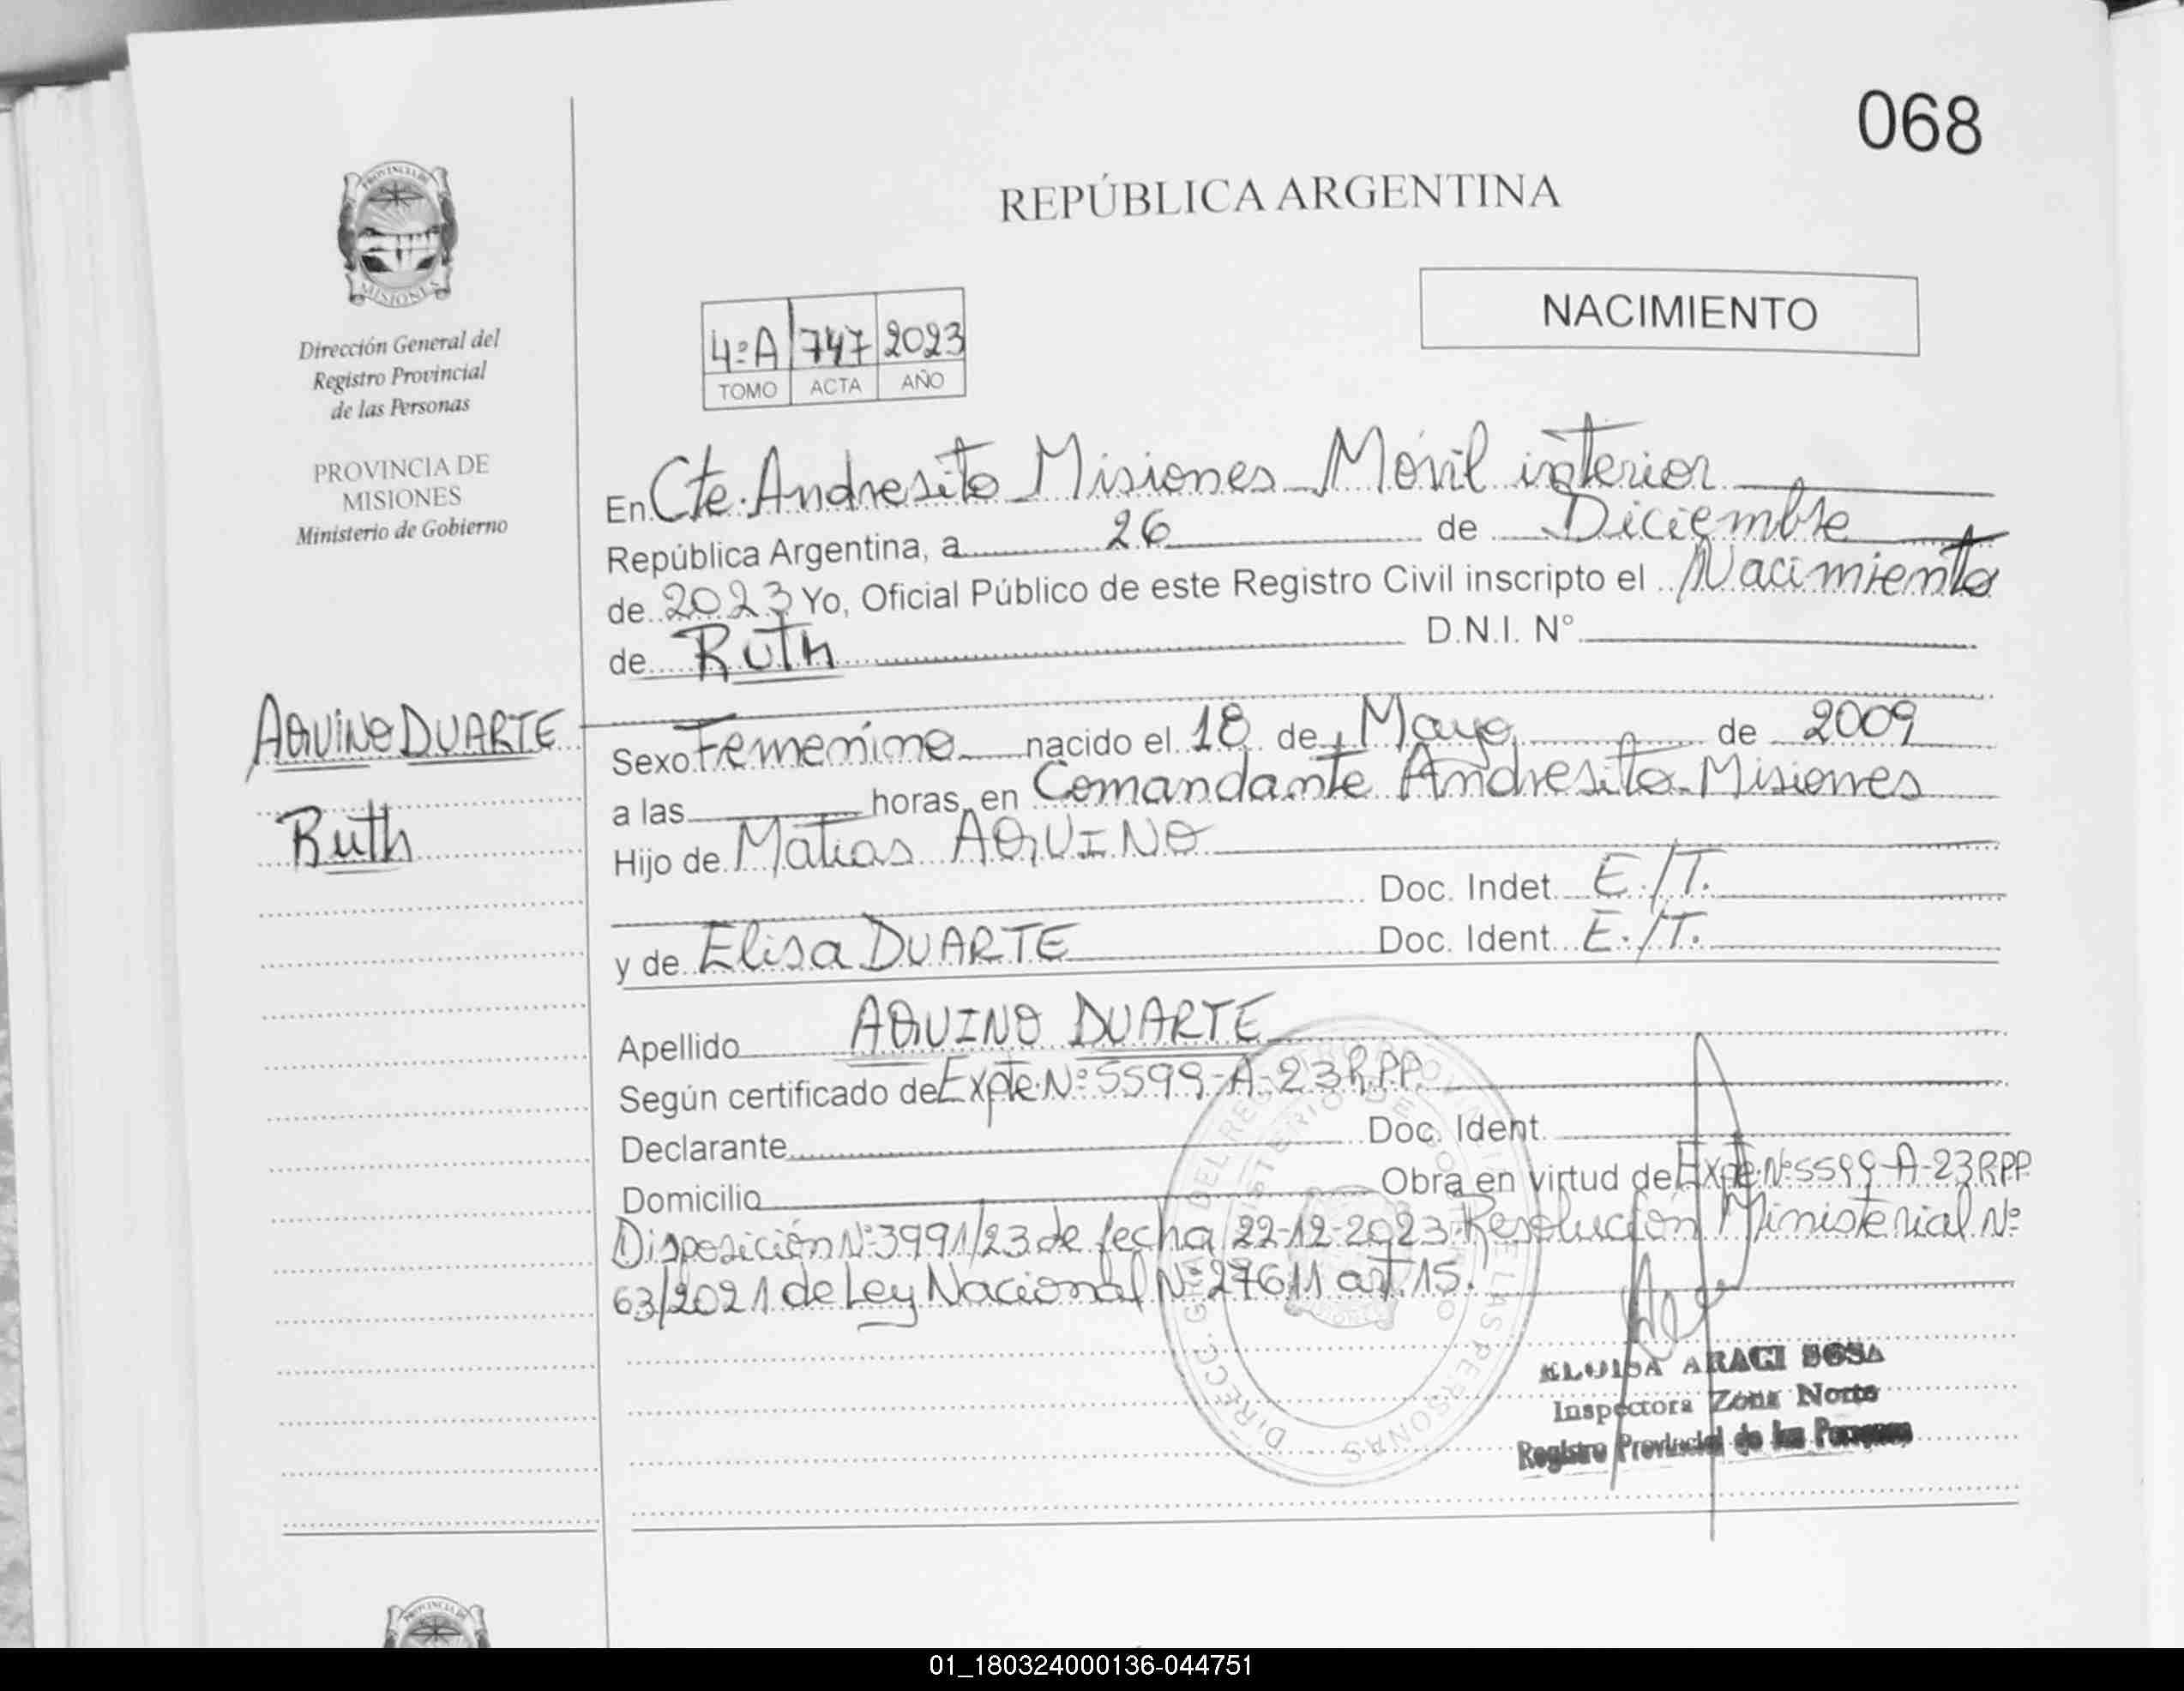 068
PROVINCIA DE
MISIONES
REPÚBLICA ARGENTINA
NACIMIENTO
Dirección General del
Registro Provincial
de las Personas
PROVINCIA DE
MISIONES
Ministerio de Gobierno
4ºA 747 2023
TOMO ACTA AÑO
En Cte. Andresito Misiones Móvil interior
República Argentina, a 26 de Diciembre
de 2023 Yo, Oficial Público de este Registro Civil inscripto el Nacimiento
de Ruth D.N.I. Nº
AQUINO DUARTE
Ruth
Sexo Femenino nacido el 18 de Mayo de 2009
a las horas, en Comandante Andresito - Misiones
Hijo de Matias AQUINO
Doc. Indet. E./T.
y de Elisa DUARTE Doc. Ident. E./T.
Apellido AQUINO DUARTE
Según certificado de Expte. Nº 5599-A-23 R.PP.
Declarante Doc. Ident.
Domicilio Obra en virtud de Expte. Nº 5599-A-23 RPP.
Disposición Nº 3991/23 de fecha 22-12-2023 - Resolución Ministerial Nº
63/2021 de Ley Nacional Nº 27611 art. 15.
ELOISA ARACI SOSA
Inspectora Zona Norte
Registro Provincial de las Personas
PROVINCIA DE
01_180324000136-044751